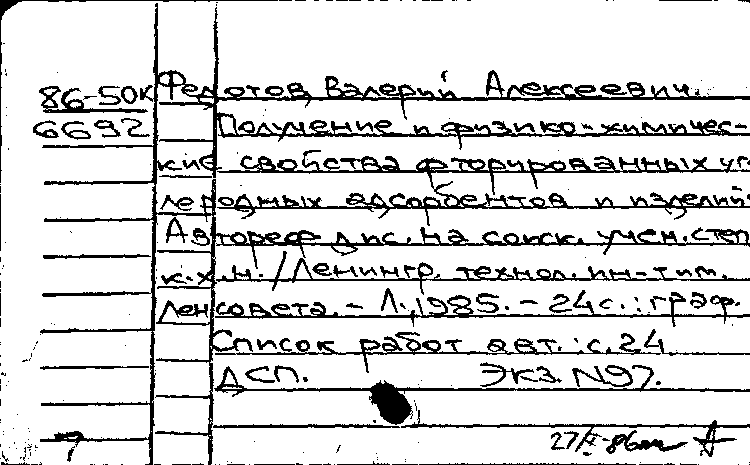 86-50к Федотов, Валерий Алексеевич.
6692 Получение и физико-химичес-
кие свойства фторированных уг
леродных адсорбентов и изделий
Автореф дис. на соиск. учен. степ
к.х.н. / Ленингр. технол. ин-т им.
Ленсовета. - Л., 1985. - 24с. : граф.
Список работ авт. : с. 24
ДСП. Экз. N97.